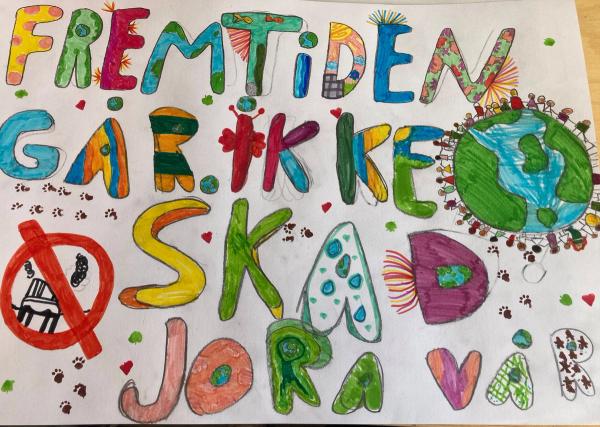 FREMTIDEN
GÅR IKKE
SKAD
JORA VÅR